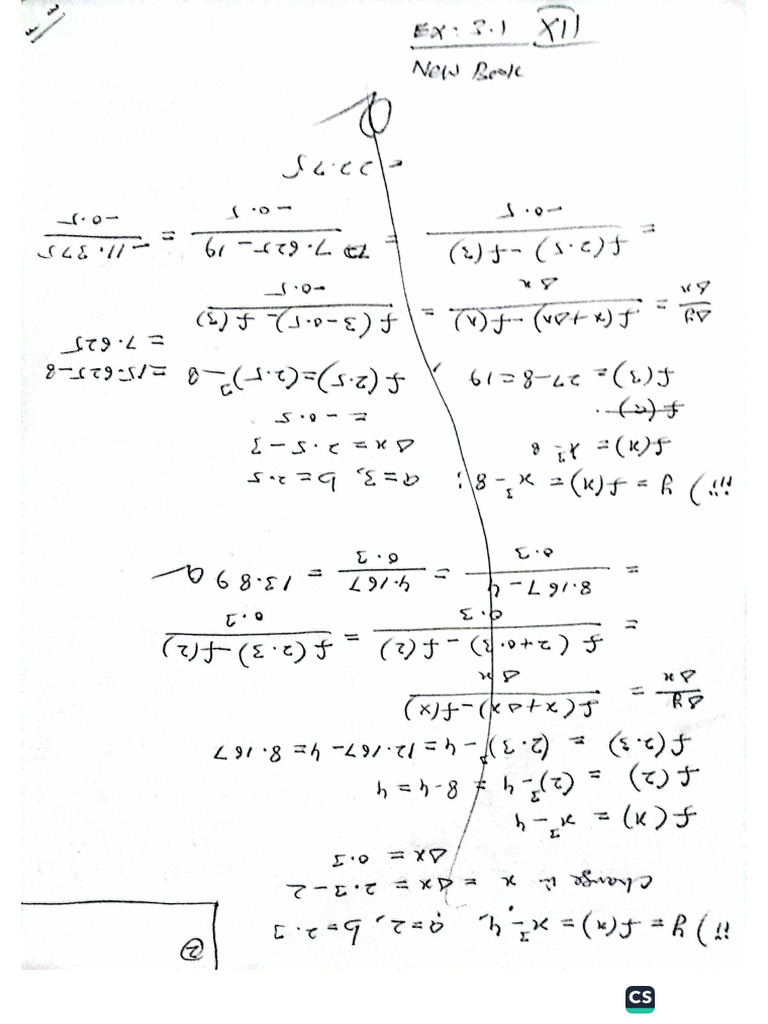 Ex: 3.1 XII
New Book
②
ii) y = f(x) = x³-4, a=2, b=2.3
change in x = Δx = 2.3-2
Δx = 0.3
f(x) = x³-4
f(2) = (2)³-4 = 8-4 = 4
f(2.3) = (2.3)³-4 = 12.167-4 = 8.167
Δy/Δx = (f(x+Δx)-f(x))/Δx
= (f(2+0.3)-f(2))/0.3 = (f(2.3)-f(2))/0.3
= (8.167-4)/0.3 = 4.167/0.3 = 13.89
iii) y = f(x) = x³-8; a=3, b=2.5
f(x) = x³-8 Δx = 2.5-3
f(a) = -0.5
f(3) = 27-8 = 19, f(2.5) = (2.5)³-8 = 15.625-8
= 7.625
Δy/Δx = (f(x+Δx)-f(x))/Δx = (f(3-0.5)-f(3))/-0.5
= (f(2.5)-f(3))/-0.5 = (7.625-19)/-0.5 = -11.375/-0.5
= 22.75
CS